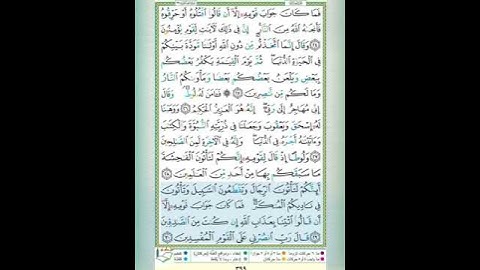 فَمَا كَانَ جَوَابَ قَوْمِهِۦٓ إِلَّآ أَن قَالُوا۟ ٱقْتُلُوهُ أَوْ حَرِّقُوهُ
فَأَنجَىٰهُ ٱللَّهُ مِنَ ٱلنَّارِ إِنَّ فِى ذَٰلِكَ لَـَٔايَٰتٍ لِّقَوْمٍ يُؤْمِنُونَ
٢٤ وَقَالَ إِنَّمَا ٱتَّخَذْتُم مِّن دُونِ ٱللَّهِ أَوْثَٰنًا مَّوَدَّةَ بَيْنِكُمْ
فِى ٱلْحَيَوٰةِ ٱلدُّنْيَا ثُمَّ يَوْمَ ٱلْقِيَٰمَةِ يَكْفُرُ بَعْضُكُم
بِبَعْضٍ وَيَلْعَنُ بَعْضُكُم بَعْضًا وَمَأْوَىٰكُمُ ٱلنَّارُ
وَمَا لَكُم مِّن نَّٰصِرِينَ ٢٥ فَـَٔامَنَ لَهُۥ لُوطٌ وَقَالَ
إِنِّى مُهَاجِرٌ إِلَىٰ رَبِّىٓ إِنَّهُۥ هُوَ ٱلْعَزِيزُ ٱلْحَكِيمُ ٢٦ وَوَهَبْنَا
لَهُۥٓ إِسْحَٰقَ وَيَعْقُوبَ وَجَعَلْنَا فِى ذُرِّيَّتِهِ ٱلنُّبُوَّةَ وَٱلْكِتَٰبَ
وَءَاتَيْنَٰهُ أَجْرَهُۥ فِى ٱلدُّنْيَا وَإِنَّهُۥ فِى ٱلْـَٔاخِرَةِ لَمِنَ ٱلصَّٰلِحِينَ
٢٧ وَلُوطًا إِذْ قَالَ لِقَوْمِهِۦٓ إِنَّكُمْ لَتَأْتُونَ ٱلْفَٰحِشَةَ
مَا سَبَقَكُم بِهَا مِنْ أَحَدٍ مِّنَ ٱلْعَٰلَمِينَ ٢٨
أَئِنَّكُمْ لَتَأْتُونَ ٱلرِّجَالَ وَتَقْطَعُونَ ٱلسَّبِيلَ وَتَأْتُونَ
فِى نَادِيكُمُ ٱلْمُنكَرَ فَمَا كَانَ جَوَابَ قَوْمِهِۦٓ إِلَّآ
أَن قَالُوا۟ ٱئْتِنَا بِعَذَابِ ٱللَّهِ إِن كُنتَ مِنَ ٱلصَّٰدِقِينَ
٢٩ قَالَ رَبِّ ٱنصُرْنِى عَلَى ٱلْقَوْمِ ٱلْمُفْسِدِينَ ٣٠
٣٩٩